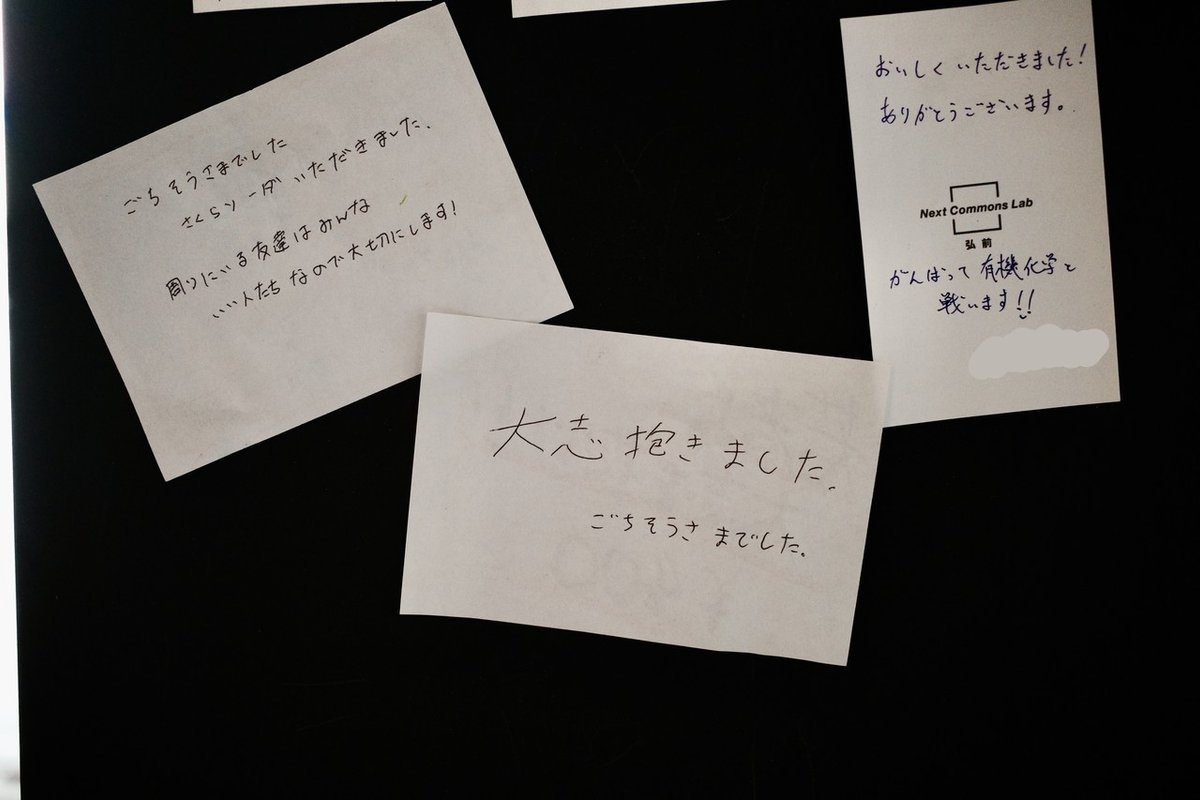 ごちそうさまでした
さくらソーダいただきました、
周りにいる友達はみんな
いい人たちなので大切にします!
大志抱きました、
ごちそうさまでした。
おいしくいただきました!
ありがとうございます。
Next Commons Lab
弘前
がんばって有機化学と
戦います!!